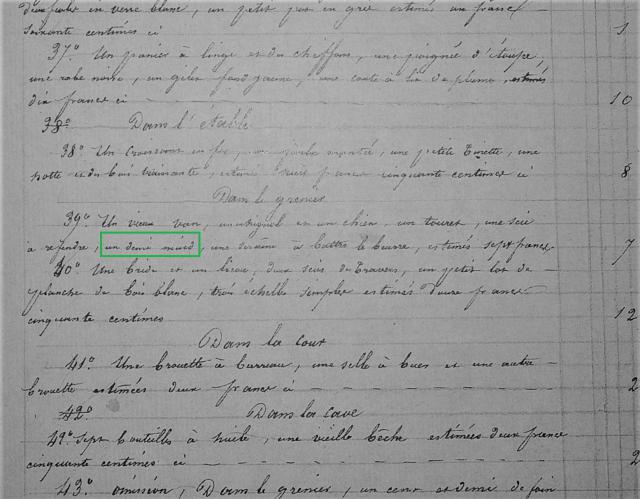 deux fioles en verre blanc, un petit pot en grès estimés un franc
soixante centimes ci 1
37° Un panier à linge et du chiffons, une poignée d'étoupe,
une robe noire, un gilet fond jaune, une coute à lit de plume, estimés
dix francs ci 10
38° Dans l'étable
38° Un en fer, une montée, une petite, une
botte et du bois trainante, estimés huit francs cinquante centimes ci 8
Dans le grenier
39° Un vieux van, un et un chien, un touret, une scie
à refendre, un demi muid, une à battre le beurre, estimés sept francs 7
40° Une bride et un licou, deux scies de travers, un petit lot de
planche de bois blanc, trois échelle simples estimés douze francs
cinquante centimes 12
Dans la cour
41° Une brouette à barreau, une selle à buer et une autre
brouette estimées deux francs ci 2
42° Dans la cave
42° Sept bouteilles à huile, une vieille bêche estimées deux francs
cinquante centimes ci 2
43° omission, Dans le grenier, un cent et demi de foin